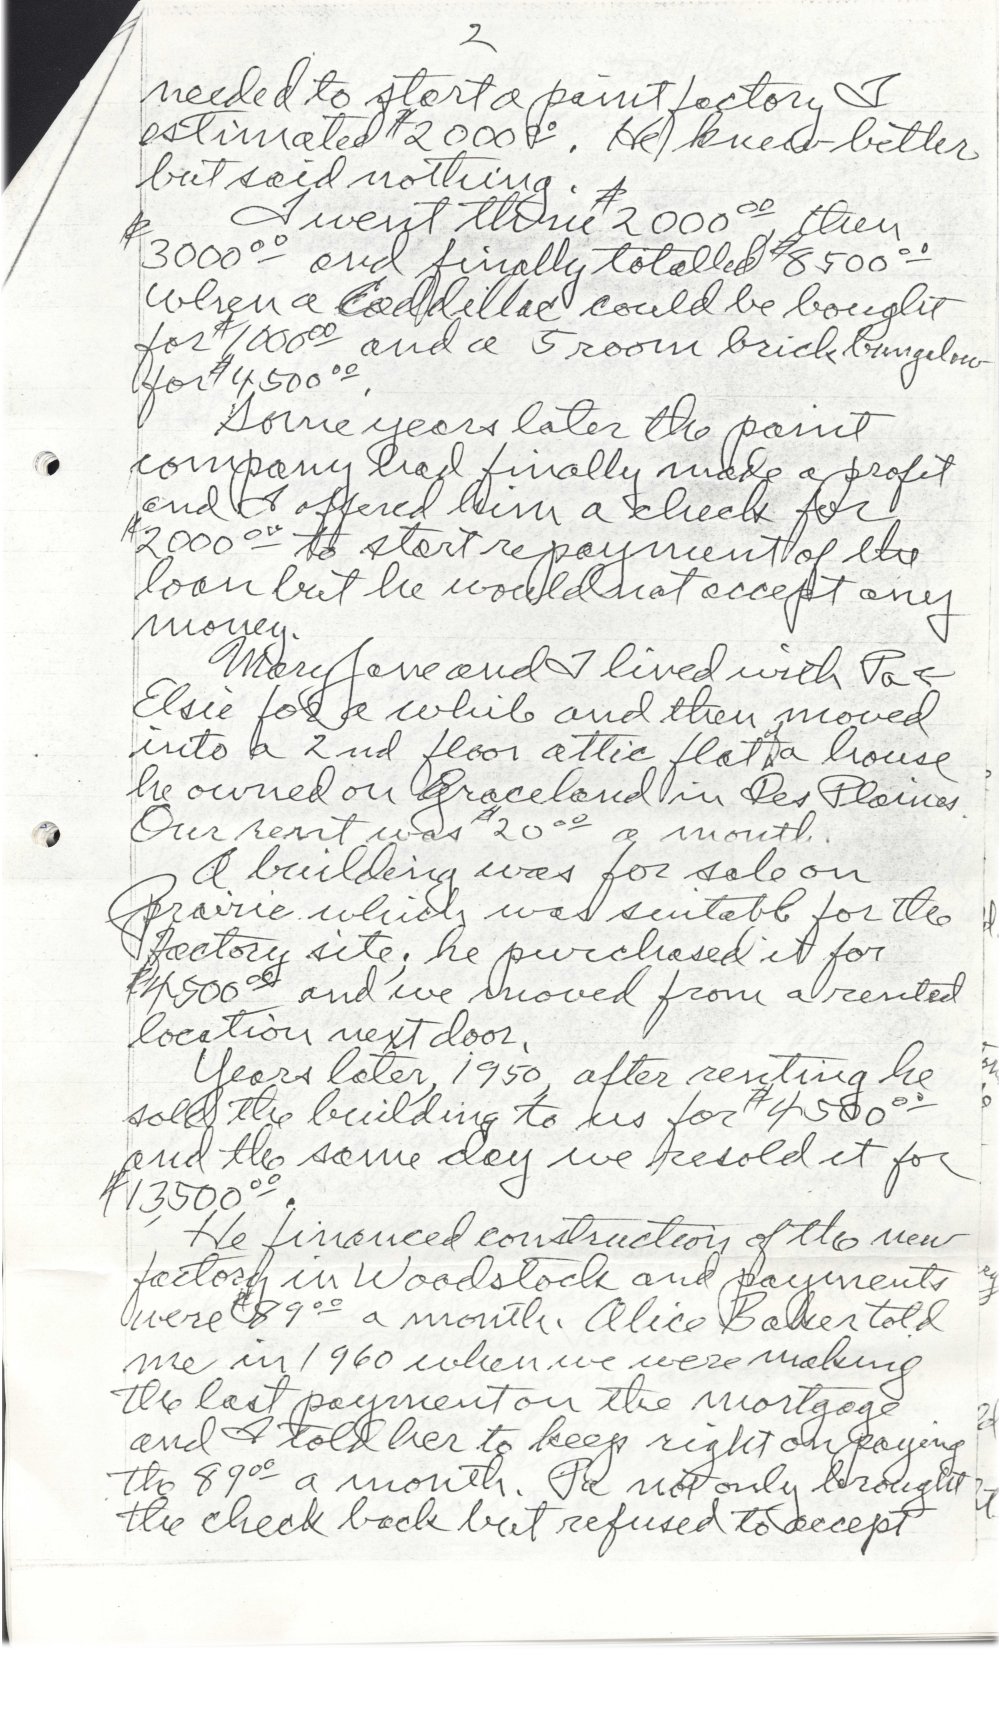 2
needed to start a paint factory I
estimated $2000.00. He knew better
but said nothing.
I went thru $2000.00, then
$3000.00 and finally totalled $8500.00
when a Caddillac could be bought
for $1000.00 and a 5 room brick bungalow
for $4500.00.
Some years later the paint
company had finally made a profit
and I offered him a check for
$2000.00 to start repayment of the
loan but he would not accept any
money.
Mary Jane and I lived with Pa &
Elsie for a while and then moved
into a 2nd floor attic flat of a house
he owned on Graceland in Des Plaines.
Our rent was $20.00 a month.
A building was for sale on
Prairie which was suitable for the
factory site; he purchased it for
$4500.00 and we moved from a rented
location next door.
Years later, 1950, after renting he
sold the building to us for $4500.00
and the same day we resold it for
$13,500.00.
He financed construction of the new
factory in Woodstock and payments
were $89.00 a month. Alice Baker told
me in 1960 when we were making
the last payment on the mortgage
and I told her to keep right on paying
the 89.00 a month. Pa not only brought
the check back but refused to accept